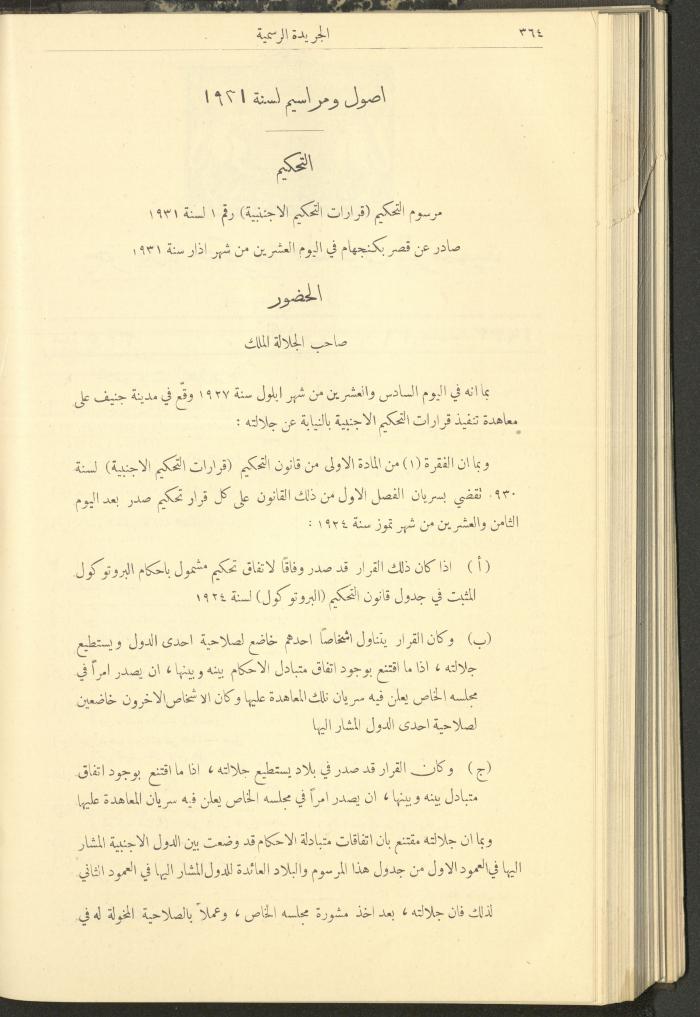 ٣٦٤
الجريدة الرسمية
اصول ومراسيم لسنة ١٩٣١
التحكيم
مرسوم التحكيم (قرارات التحكيم الاجنبية) رقم ١ لسنة ١٩٣١
صادر عن قصر بكنجهام في اليوم العشرين من شهر اذار سنة ١٩٣١
الحضور
صاحب الجلالة الملك
بما انه في اليوم السادس والعشرين من شهر ايلول سنة ١٩٢٧ وقّع في مدينة جنيف على
معاهدة تنفيذ قرارات التحكيم الاجنبية بالنيابة عن جلالته :
وبما ان الفقرة (١) من المادة الاولى من قانون التحكيم (قرارات التحكيم الاجنبية) لسنة
٩٣٠ تقضي بسريان الفصل الاول من ذلك القانون على كل قرار تحكيم صدر بعد اليوم
الثامن والعشرين من شهر تموز سنة ١٩٢٤ :
(أ) اذا كان ذلك القرار قد صدر وفاقًا لاتفاق تحكيم مشمول باحكام البروتوكول
المثبت في جدول قانون التحكيم (البروتوكول) لسنة ١٩٢٤
(ب) وكان القرار يتناول اشخاصًا احدهم خاضع لصلاحية احدى الدول ويستطيع
جلالته ، اذا ما اقتنع بوجود اتفاق متبادل الاحكام بينه وبينها ، ان يصدر امراً في
مجلسه الخاص يعلن فيه سريان تلك المعاهدة عليها وكان الاشخاص الاخرون خاضعين
لصلاحية احدى الدول المشار اليها
(ج) وكان القرار قد صدر في بلاد يستطيع جلالته ، اذا ما اقتنع بوجود اتفاق
متبادل بينه وبينها ، ان يصدر امراً في مجلسه الخاص يعلن فيه سريان المعاهدة عليها
وبما ان جلالته مقتنع بان اتفاقات متبادلة الاحكام قد وضعت بين الدول الاجنبية المشار
اليها في العمود الاول من جدول هذا المرسوم والبلاد العائدة للدول المشار اليها في العمود الثاني
لذلك فان جلالته ، بعد اخذ مشورة مجلسه الخاص ، وعملاً بالصلاحية المخولة له في